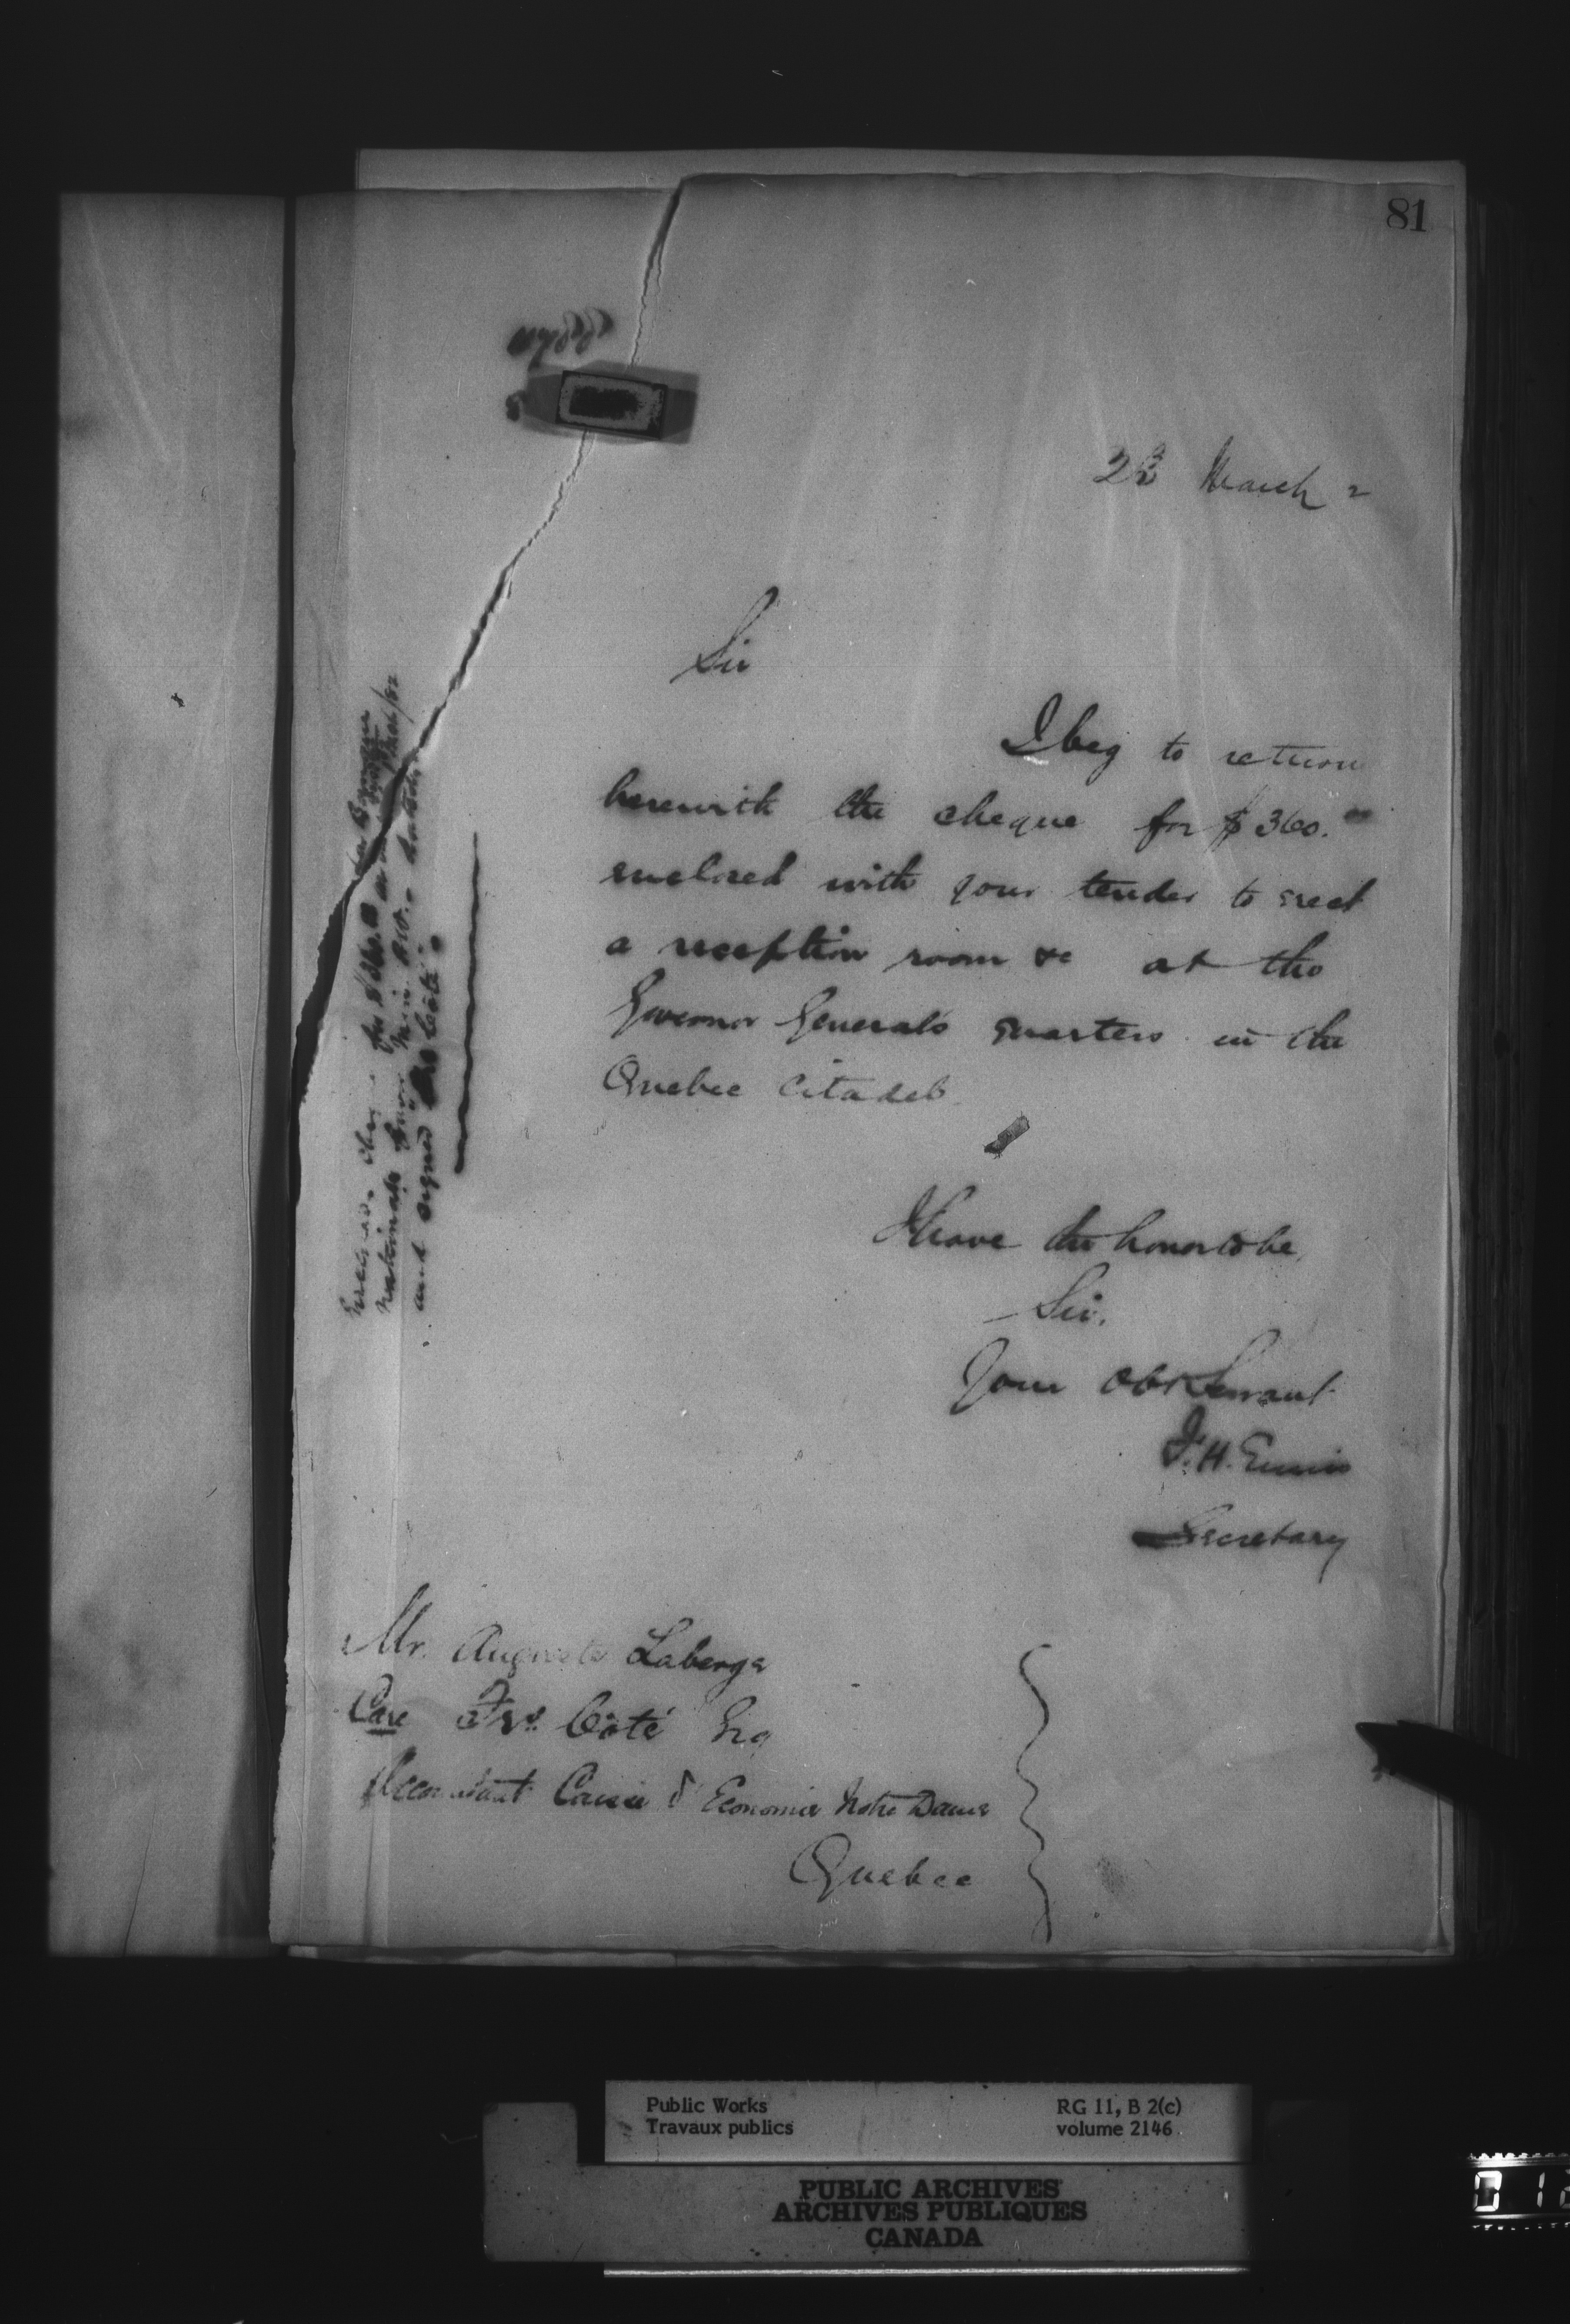 81
March 2
Sir
I beg to return
herewith the cheque for $360.00
enclosed with your tender to erect
a reception room &c at the
Governor Generals quarters in the
Quebec Citadel
I have the honor to be
Sir.
Your obt Servant
F. H. Ennis
Secretary
Mr. Auguste Laberge
Care Frs. Côté Esq
Accountant Caisse d'Economie Notre Dame
Quebec
for $360.
Nationale
and signed Côté
Public Works
Travaux publics
RG 11, B 2(c)
volume 2146
PUBLIC ARCHIVES
ARCHIVES PUBLIQUES
CANADA
012